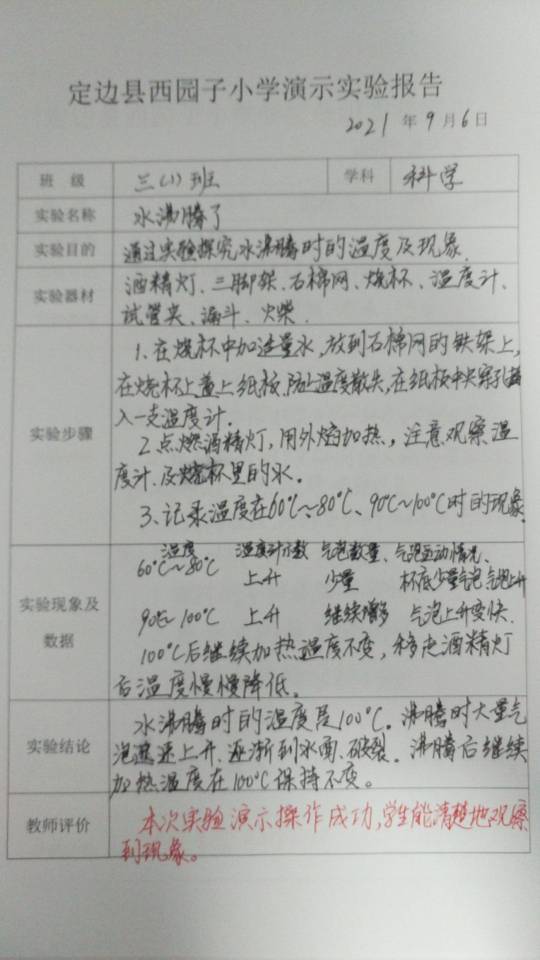 定边县西园子小学演示实验报告
2021 年 9 月 6 日
班 级 三(1)班 学科 科学
实验名称 水沸腾了
实验目的 通过实验探究水沸腾时的温度及现象.
实验器材 酒精灯、三脚架、石棉网、烧杯、温度计、
试管夹、漏斗、火柴.
实验步骤
1.在烧杯中加适量水,放到石棉网的铁架上,
在烧杯上盖上纸板,防止温度散失,在纸板中央穿孔插
入一支温度计.
2.点燃酒精灯,用外焰加热,注意观察温
度计.及烧杯里的水.
3、记录温度在60℃~80℃、90℃~100℃时的现象.
实验现象及数据
温度 温度计示数 气泡数量、气泡运动情况、
60℃~80℃ 上升 少量 杯底少量气泡 气泡上升
90℃~100℃ 上升 继续增多 气泡上升变快.
100℃后继续加热温度不变,移走酒精灯
后温度慢慢降低.
实验结论 水沸腾时的温度是100℃.沸腾时大量气
泡迅速上升、逐渐到水面、破裂.沸腾后继续
加热温度在100℃保持不变。
教师评价 本次实验演示操作成功,学生能清楚地观察
到现象。